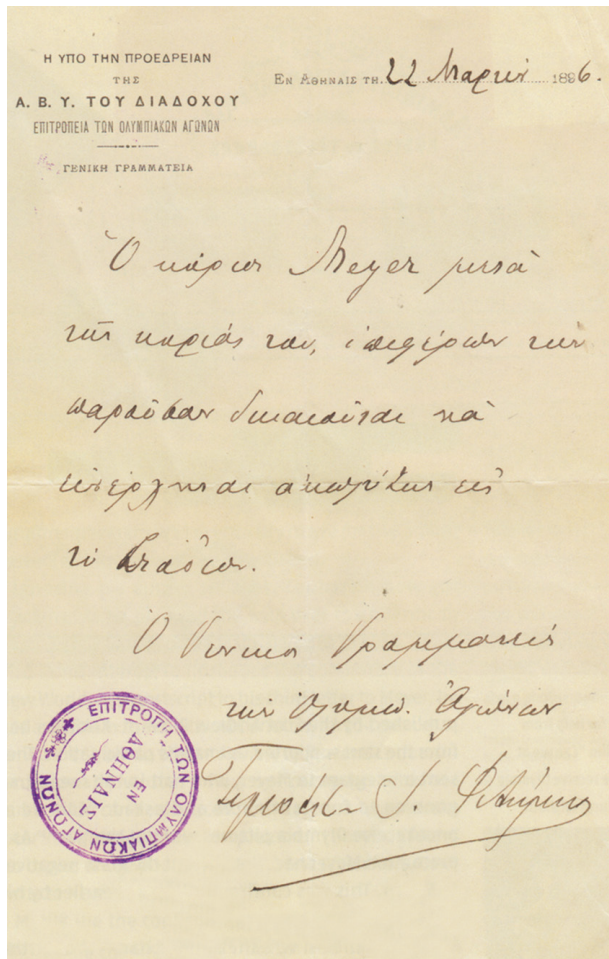 Η ΥΠΟ ΤΗΝ ΠΡΟΕΔΡΕΙΑΝ
ΤΗΣ
Α. Β. Υ. ΤΟΥ ΔΙΑΔΟΧΟΥ
ΕΠΙΤΡΟΠΕΙΑ ΤΩΝ ΟΛΥΜΠΙΑΚΩΝ ΑΓΩΝΩΝ
ΓΕΝΙΚΗ ΓΡΑΜΜΑΤΕΙΑ
ΕΝ ΑΘΗΝΑΙΣ ΤΗ 22 Μαρτίου 1896.
Ὁ κύριος Meyer μετὰ
τῆς κυρίας του, ἐπιφέρων τὴν
παροῦσαν δικαιοῦται νὰ
εἰσέρχηται ἀκωλύτως εἰς
τὸ Στάδιον.
Ὁ Γενικὸς Γραμματεὺς
τῶν Ὀλυμπ. Ἀγώνων
Τιμολέων Ι. Φιλήμων
ΕΠΙΤΡΟΠΗ ΤΩΝ ΟΛΥΜΠΙΑΚΩΝ ΑΓΩΝΩΝ
ΕΝ
ΑΘΗΝΑΙΣ